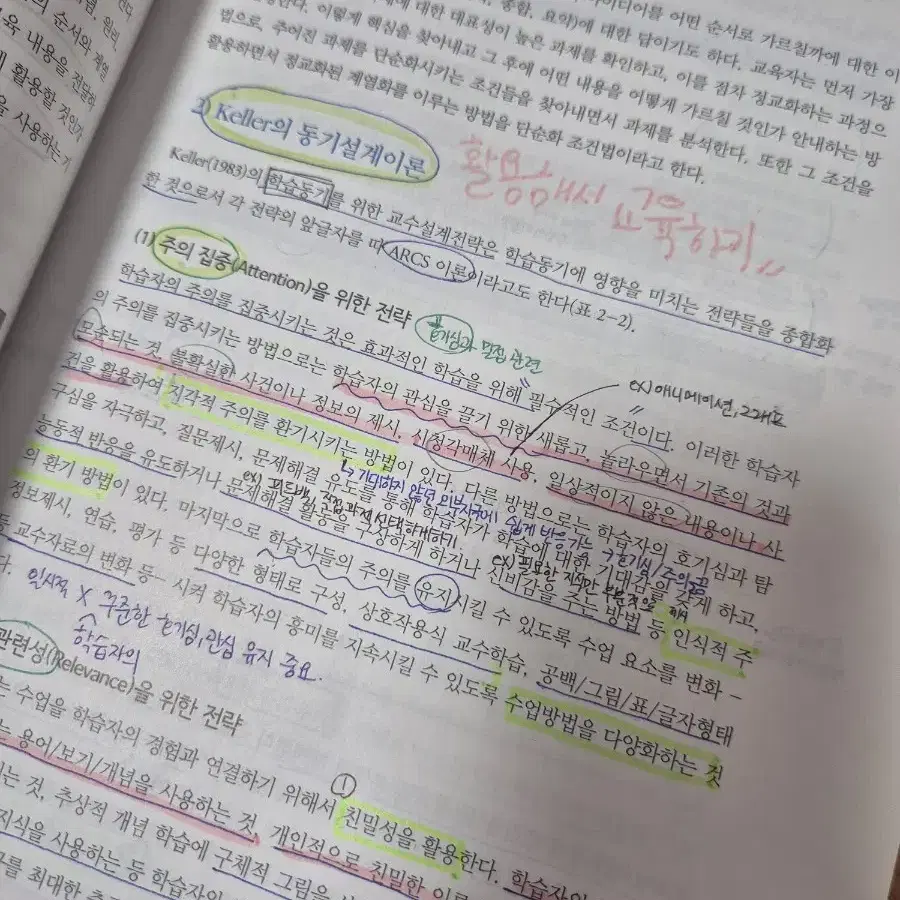 종합, 요약)에 대한 답이기도 하다. 교육자는 먼저 가장
에 대한 대표성이 높은 과제를 확인하고, 이를 점차 정교화하는 과정으
이렇게 핵심을 찾아내고 그 후에 어떤 내용을 어떻게 가르칠 것인가 안내하는 방
법으로, 주어진 과제를 단순화시키는 조건들을 찾아내면서 과제를 분석한다. 또한 그 조건을
활용하면서 정교화된 계열화를 이루는 방법을 단순화 조건법이라고 한다.
Keller의 동기설계이론
활용해서 교육하기
Keller(1983)의 학습동기를 위한 교수설계전략은 학습동기에 영향을 미치는 전략들을 종합화
한 것으로서 각 전략의 앞글자를 따 ARCS 이론이라고도 한다(표 2-2).
(1) 주의 집중(Attention)을 위한 전략
호기심과 밀접 관련
학습자의 주의를 집중시키는 것은 효과적인 학습을 위해 필수적인 조건이다. 이러한 학습자
ex) 애니메이션, 그래프
의 주의를 집중시키는 방법으로는 학습자의 관심을 끌기 위한 새롭고, 놀라우면서 기존의 것과
모순되는 것, 불확실한 사건이나 정보의 제시, 시청각매체 사용, 일상적이지 않은 내용이나 사
건을 활용하여 지각적 주의를 환기시키는 방법이 있다. 다른 방법으로는 학습자의 호기심과 탐
기대하지 않던 외부자극에 쉽게 반응가능
구심을 자극하고, 질문제시, 문제해결 유도를 통해 학습자가 학습에 대한 기대감을 갖게 하고,
능동적 반응을 유도하거나 문제해결 활동을 구상하게 하거나 신비감을 주는 방법 등 인식적 주
의 환기 방법이 있다. 마지막으로 학습자들의 주의를 유지시킬 수 있도록 수업 요소를 변화 –
정보제시, 연습, 평가 등 다양한 형태로 구성, 상호작용식 교수학습, 공백/그림/표/글자형태
교수자료의 변화 등– 시켜 학습자의 흥미를 지속시킬 수 있도록 수업방법을 다양화하는 것
일시적 X 꾸준한 호기심, 관심 유지 중요.
학습자의
관련성(Relevance)을 위한 전략
는 수업을 학습자의 경험과 연결하기 위해서 친밀성을 활용한다. 학습자의
①
는 용어/보기/개념을 사용하는 것, 개인적으로 친밀한 이름
는 것, 추상적 개념 학습에 구체적 그림을
지식을 사용하는 등 학습자의
를 최대한